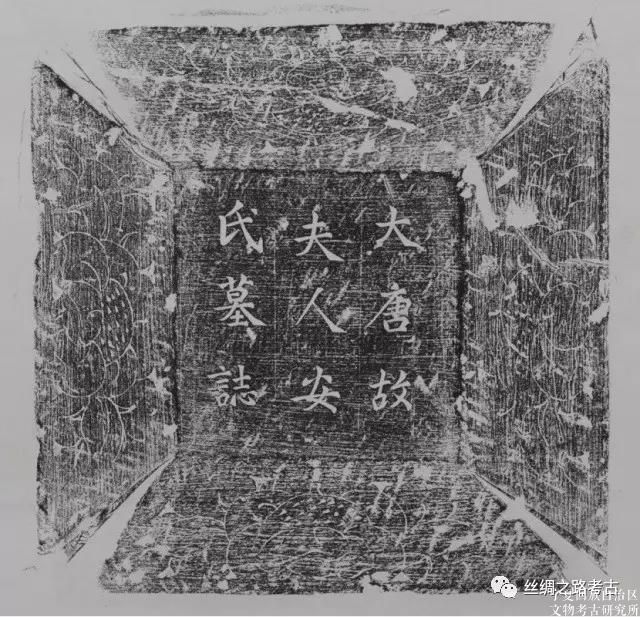 大唐故
夫人安
氏墓誌
丝绸之路考古
宁夏回族自治区
文物考古研究所